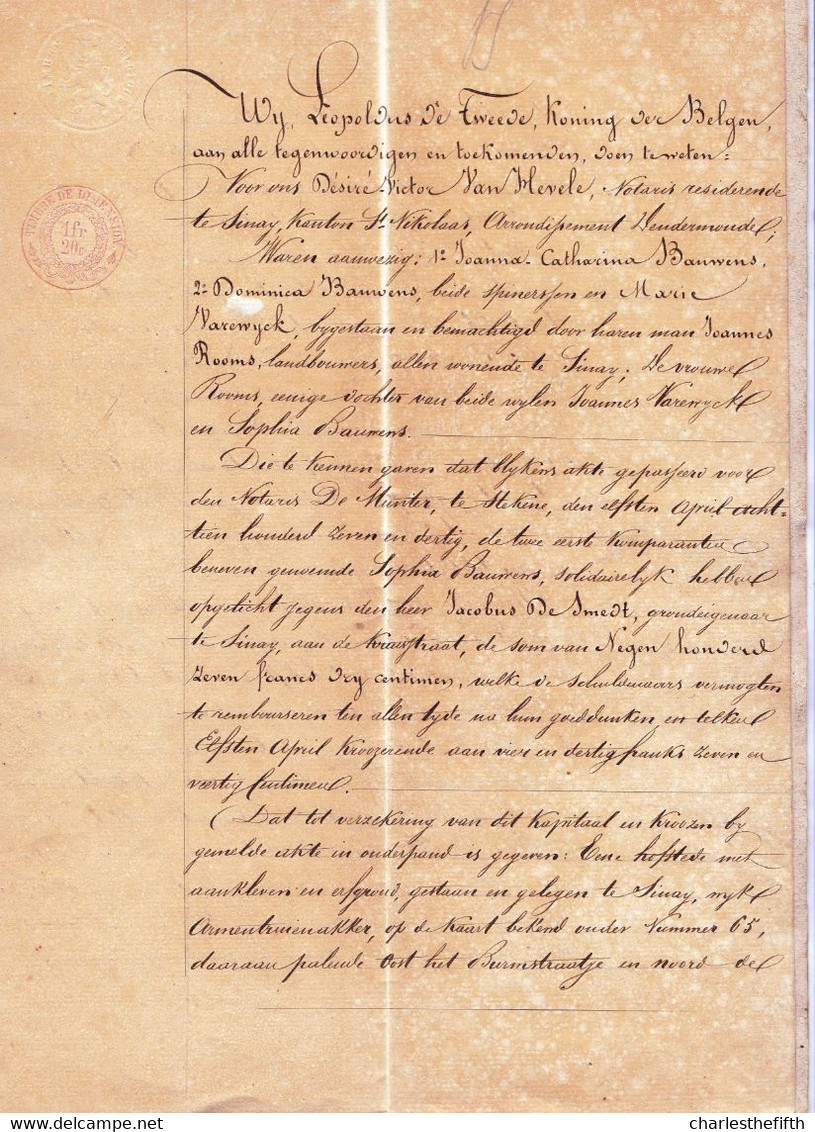 Wy, Léopoldus de Tweede, Koning der Belgen,
aan alle tegenwoordigen en toekomenden, doen te weten:
TIMBRE DE DIMENSION
1 fr
20 c
Voor ons Désiré Victor Van Hevele, Notaris residerende
te Sinay, Kanton St Nikolaas, Arrondissement Dendermonde;
Waren aanwezig: 1° Joanna-Catharina Bauwens,
2° Dominica Bauwens, beide spinerssen en Marie
Varewyck, bygestaan en bemachtigd door haren man Joannes
Rooms, landbouwers, allen wonende te Sinay; De vrouwe
Rooms, eenige dochter van beide wylen Joannes Varewyck
en Sophia Bauwens.
Die te kennen gaven dat blykens akte gepasseerd voor
den Notaris De Munter, te Stekene, den elfsten April acht-
tien honderd zeven en dertig, de twee eerste Komparanten
beneven genoemde Sophia Bauwens, solidairelyk hebben
opgelicht jegens den heer Jacobus De Smedt, grondeigenaar
te Sinay, aan de, de som van Negen honderd
zeven francs dry centimen, welke de schuldenaars vermogten
te rembourseren ten allen tyde na hun goeddunken, en telken
Elfsten April Kroozerende aan vier en dertig franks zeven en
veertig Centimen.
Dat tot verzekering van dit Kapitaal en Kroozen by
gemelde akte in onderpand is gegeven: Eene hofstede met
aankleven en erfgrond, gestaan en gelegen te Sinay, wyk
Armentruienakker, op de Kaart bekend onder Nummer 65,
daaraan palende Oost het Burmstraatje en noord de
charlesthefifth